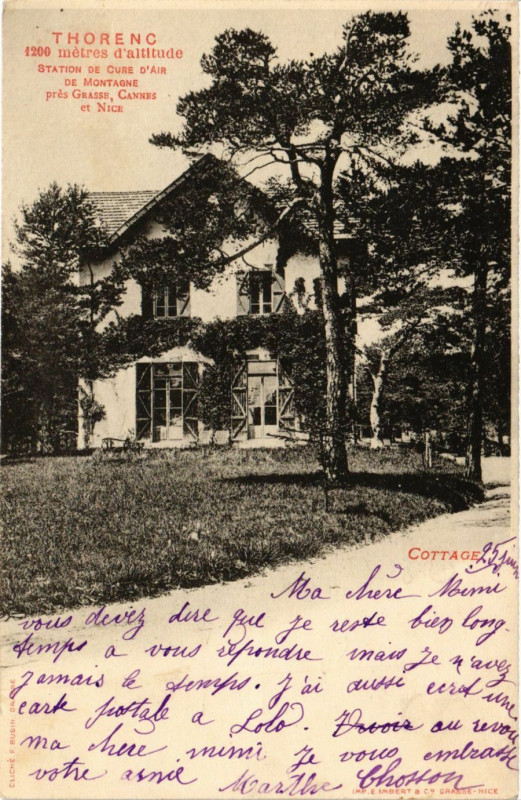 THORENC
1200 mètres d'altitude
STATION DE CURE D'AIR
DE MONTAGNE
près GRASSE, CANNES
et NICE
COTTAGE
25
Ma chère Mimi
vous devez dire que je reste bien long-
temps a vous répondre mais je n'avez
jamais le temps. J'ai aussi ecrit une
carte postale a Lolo. au revoir
ma chère mimi je vous embrasse
votre amie Marthe Chosson
CLICHÉ F. BUSIN, GRASSE
IMP. E. IMBERT & Cie GRASSE-NICE